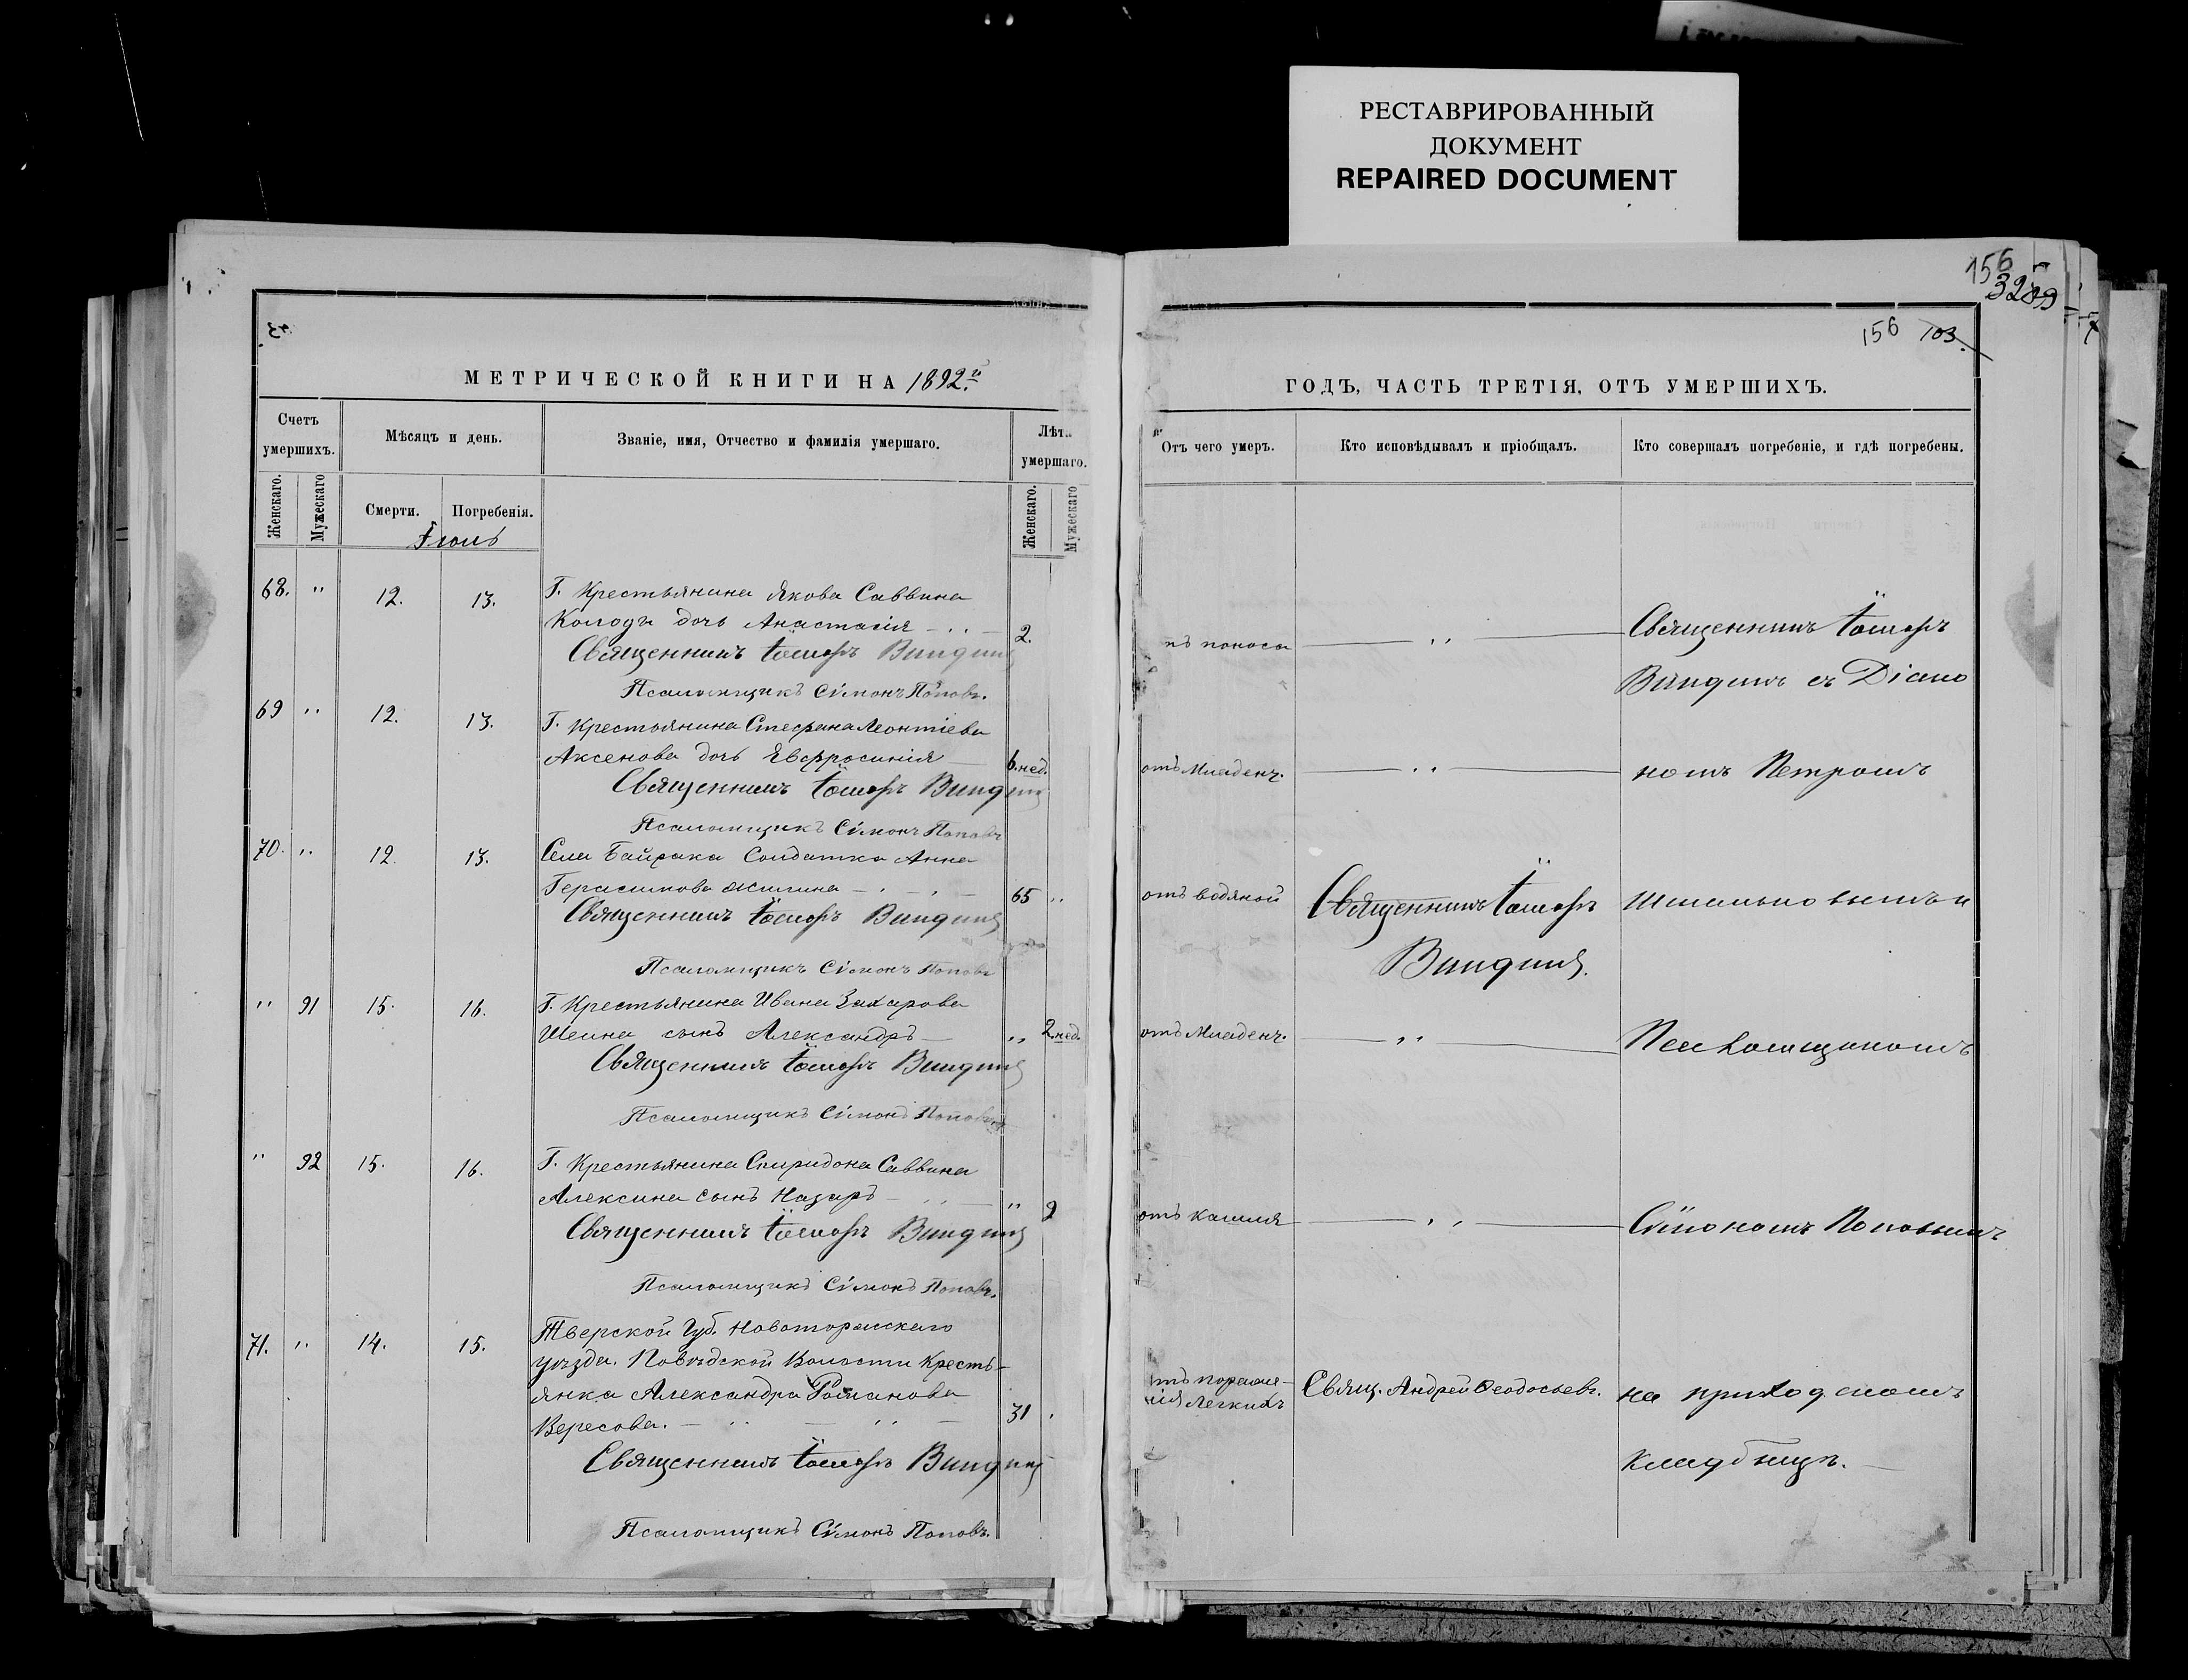 РЕСТАВРИРОВАННЫЙ
ДОКУМЕНТ
REPAIRED DOCUMENT
156
156 103.
МЕТРИЧЕСКОЙ КНИГИ НА 1892.й
Счетъ умершихъ.
Мѣсяцъ и день.
Званіе, имя, Отчество и фамилія умершаго.
Лѣта умершаго.
Женскаго.
Мужескаго
Смерти.
Погребенія.
Женскаго.
Мужескаго
Іюль
68. " 12. 13. Г. Крестьянина Якова Саввина
дочь Анастасія 2.
Священникъ
Псаломщикъ Сѵмонъ Поповъ.
69 " 12. 13. Г. Крестьянина Стефана Леонтіева
Аксенова дочь Евфросинія 6.нед.
Священникъ
Псаломщикъ Сѵмонъ Поповъ
70. " 12. 13. Села Байрака Солдатка Анна
Герасимова 65 "
Священникъ
Псаломщикъ Сѵмонъ Поповъ
" 91 15. 16. Г. Крестьянина Ивана Захарова
Шеина сынъ Александръ " 2.нед.
Священникъ
Псаломщикъ Сѵмонъ Поповъ
" 92 15. 16. Г. Крестьянина Спиридона Саввина
Алексина сынъ Назаръ " 2
Священникъ
Псаломщикъ Сѵмонъ Поповъ.
71. " 14. 15. Тверской Губ. Новоторжскаго
уѣзда. Волости Кресть-
янка Александра Романова
Вересова. 31
Священникъ
Псаломщикъ Сѵмонъ Поповъ.
ГОДЪ, ЧАСТЬ ТРЕТІЯ, ОТЪ УМЕРШИХЪ.
Отъ чего умеръ.
Кто исповѣдывалъ и пріобщалъ.
Кто совершалъ погребеніе, и гдѣ погребены.
поноса
Священникъ
съ Діако
отъ Младенч.
номъ Петромъ
отъ водяной
Священникъ
отъ Младенч.
Псаломщикомъ
отъ кашля
Сѵмономъ Поповымъ
Легкихъ
Свящ. Андрей Ѳеодосьевъ.
на приходскомъ
кладбищѣ.